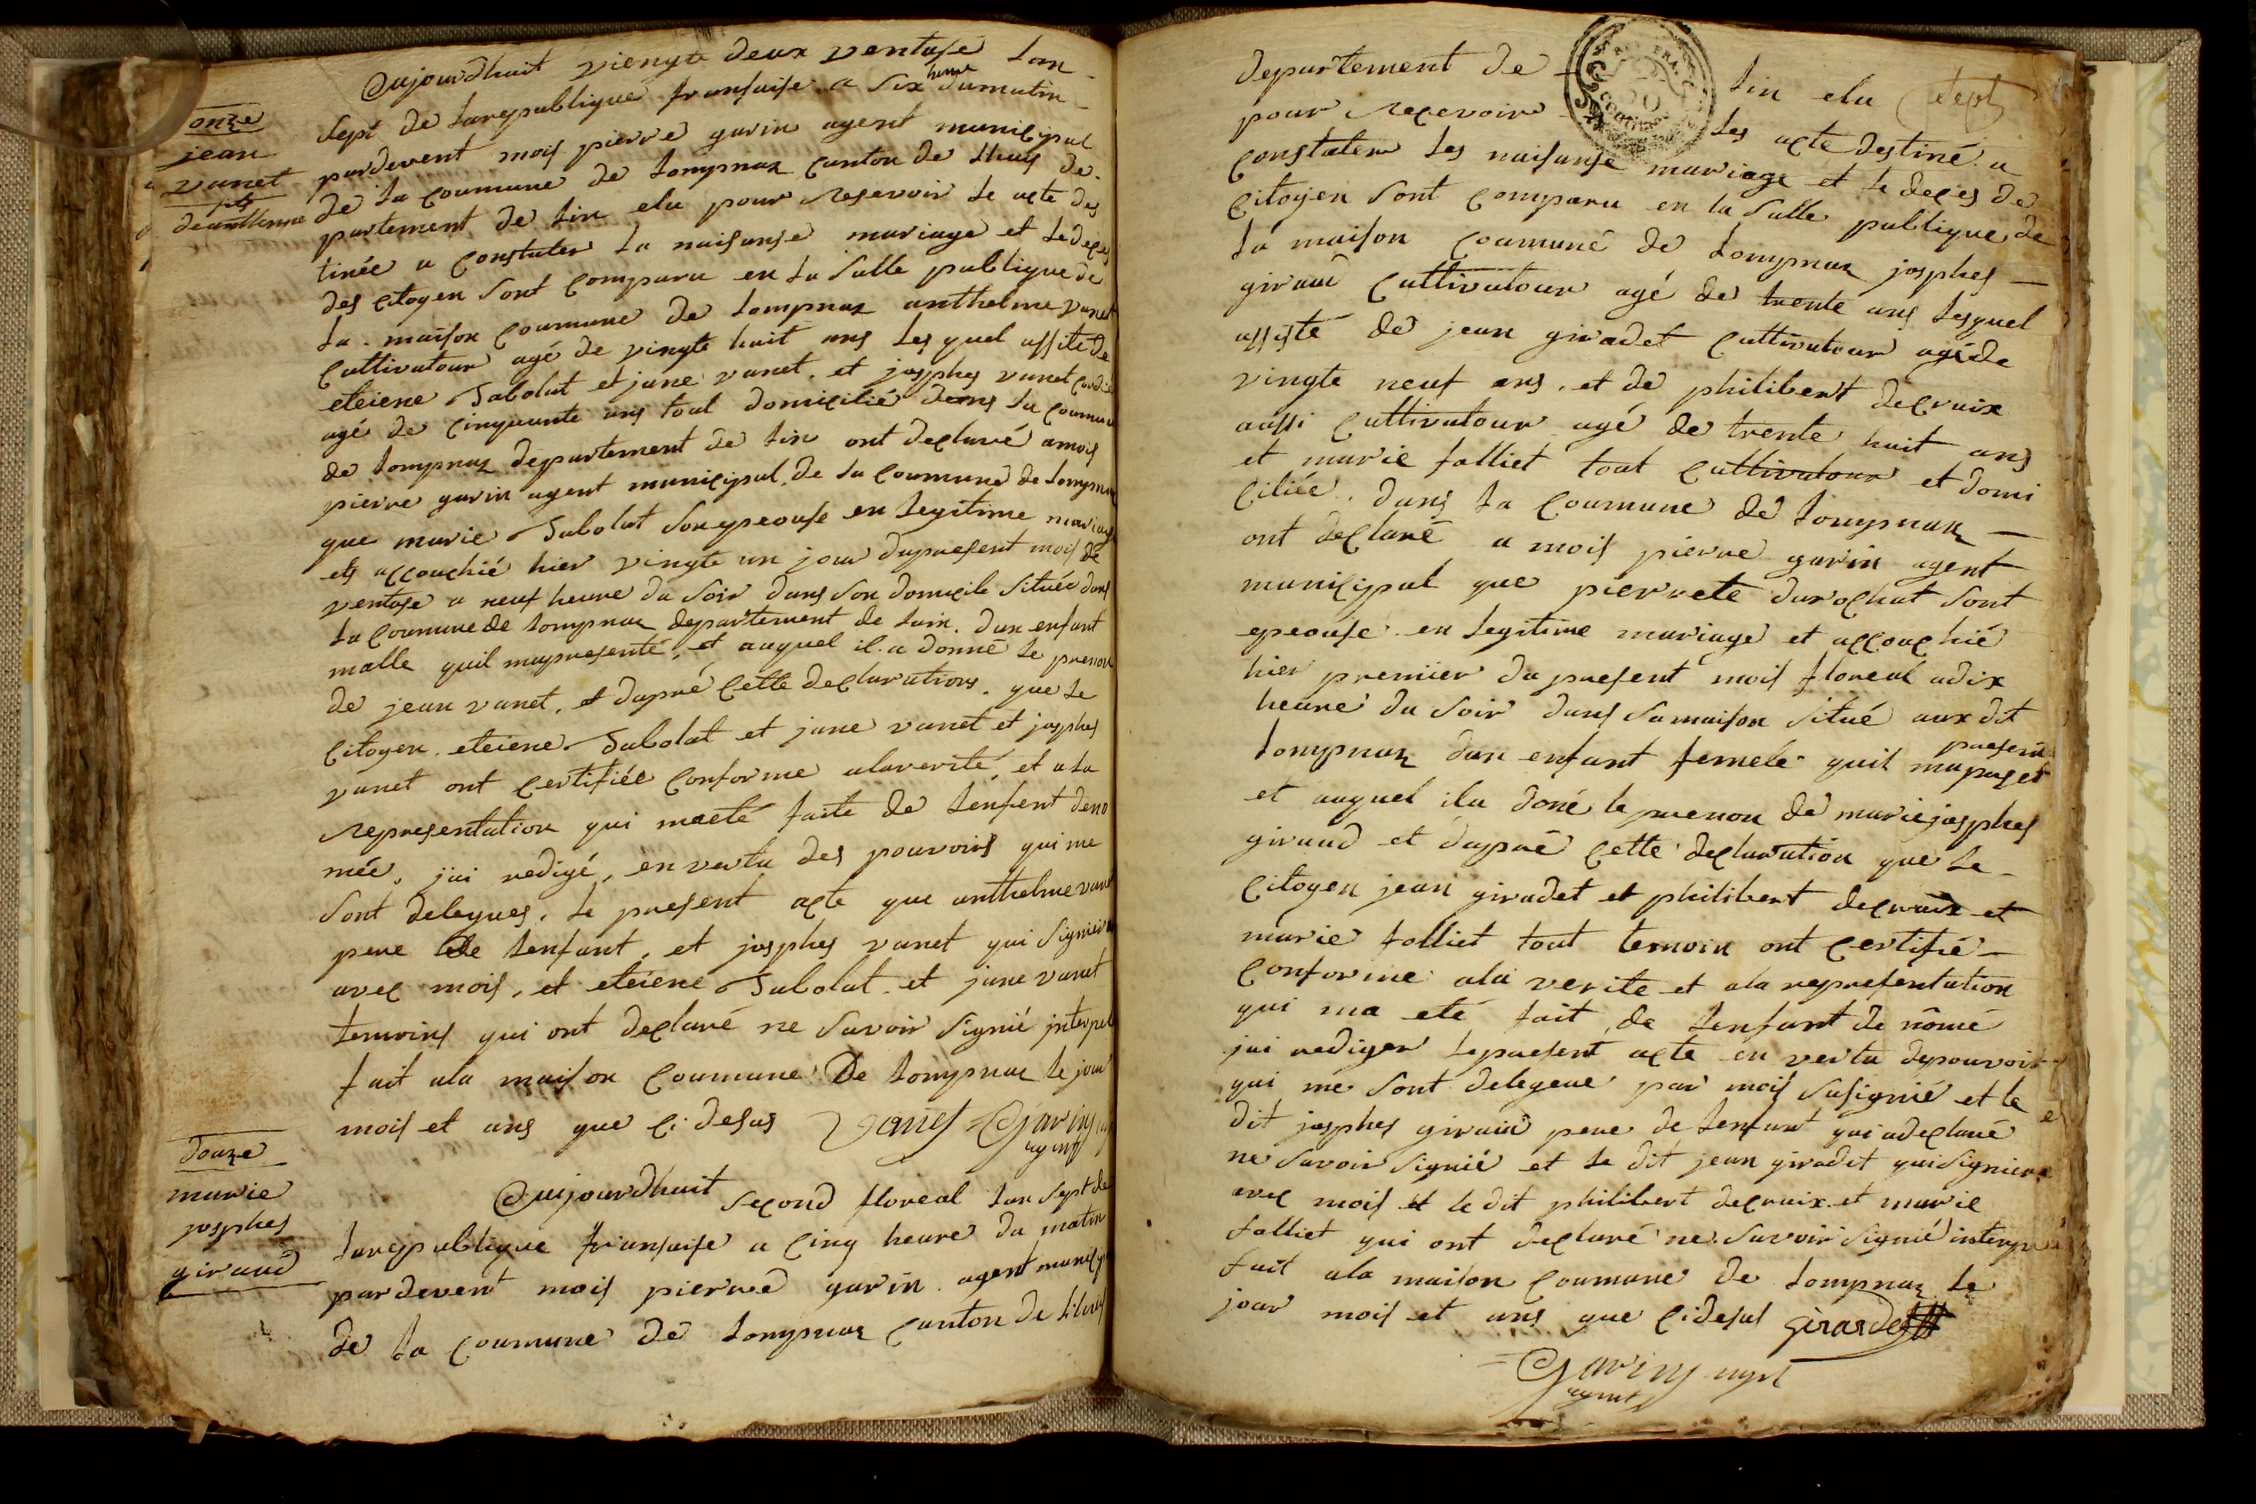 onze
jean
vanet
fils
deanthelme
aujourdhuit viengte deux ventose lan
sept de larepublique fransaise a six heure dumatin
pardevent mois pierre garin agent municypal
de la coumune de lompnaz canton de lhuis de
partement de lin elu pour reservoir le acte des
tinée a constater la naisanse mariage et le deces
des citoyen sont comparu en la salle publique de
la maison coumune de lompnaz anthelme vanet
cultivatour agé de vingte huit ans lesquel assite de
eteiene Sabolat et jane vanet et josphes vanet
agé de cinquante ans tout domicilié dans la coumune
de lompnaz departement de lin ont declaré amois
pierre garin agent municipal de la coumune de lompnaz
que marie Sabolat son epeouse en legitime mariage
ets accouchié hier vingte un jour dupresent mois de
ventose a neuf heure du soir dans son domicile située dans
la coumune de lompnaz departement de lain dun enfant
malle quil mapresenté, et auquel il a donné le prenon
de jean vanet, et dapré cette declarations que le
citoyen eteiene Sabolat et jane vanet et josphes
vanet ont certifiée conforme alaverité, et ala
representation qui maeté faite de lenfent deno
mée, jai redigé, en vertu des pouvoirs qui me
sont delegues, le present acte que anthelme vanet
pere de lenfant, et josphes vanet qui signiera
avec mois, et eteiene Sabolat et jane vanet
temoins qui ont declaré ne savoir signié interpel
fait ala maison coumune De lompnaz le jour
mois et ans que ci desus Vanet Garin
agent
douze
marie
josphes
giraud
aujourdhuit second floreal lan sept de
larepublique fransaise a cinq heure du matin
pardevent mois pierre garin agent municyp
de la coumune de lompnaz canton de lhuis
departement de lin elu sept
pour recevoir les acte destiné a
constater les naisanse mariage et le deces de
citoyen sont comparu en la salle publique de
la maison coumune de lompnaz josphes
giraud cultivatour agé de trente ans lesquel
assisté de jean giradet cultivatour agé de
vingte neuf ans et de philibert decroix
aussi cultivatour agé de trente huit ans
et marie falliet tout cultivatour et domi
ciliée dans la coumune de lompnaz
ont declaré a mois pierre garin agent
municippal que pierrete durochat sont
epeouse en legitime mariage et accouchié
hier premier du present mois floreal adix
heure du soir dans samaison situé aux dit
lompnaz dun enfant femele quil ma present
et auquel ila doné le prenon de marie josphes
giraud et dapré cette declaration que le
citoyen jean giradet et philibert decroix et
marie falliet tout temoin ont certifié
conforme ala verite et ala representation
qui ma eté fait de lenfant de nomé
jai rediger lepresent acte en vertu depouvoir
qui me sont delegeue par mois susignié et le
dit josphes giraud pere de lenfant qui a declaré
ne savoir signié et le dit jean giradet qui signiera
avec mois et le dit philibert decroix et marie
falliet qui ont declaré ne savoir signié interpe
fait ala maison coumune de lompnaz le
jour mois et ans que cidesus Girardet
Garin agent
agent